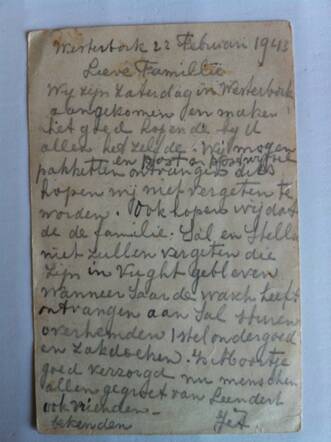 Westerbork 22 Februari 1943
Lieve Famillie
Wij zijn Zaterdag in Westerbork
aangekomen en maken
het goed hopende bij d
allen het zelfde. Wij mogen
en post en postwissel
pakketten ontvangen dus
hopen wij niet vergeten te
worden. Ook hopen wij dat
de de familie. Sal en Stella
niet zullen vergeten die
zijn in Vught gebleven
wanneer Saar de wasch heeft
ontvangen aan Sal sturen
overhemden 1 stel ondergoed
en zakdoeken. Is
goed verzorgd nu menschen
allen gegroet van Leendert
ook vrienden - Jet
bekenden